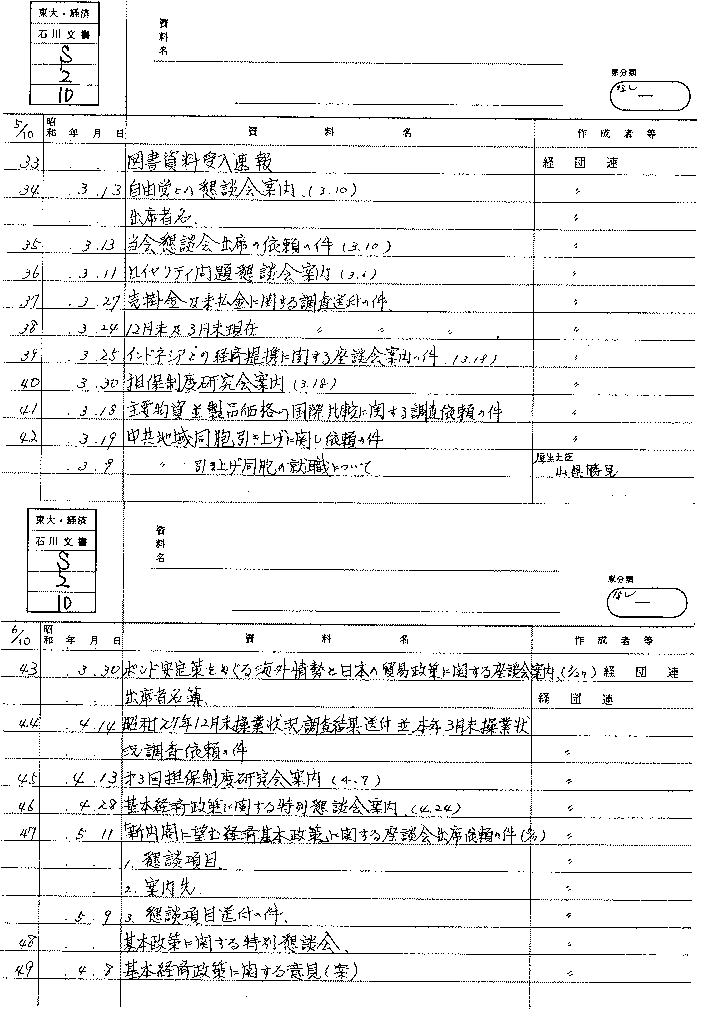 東大・経済
石川文書
S
2
10
資料名
原分類
なし
5/10 昭和 年 月 日 資料名 作成者等
33 . . 図書資料受入速報 経団連
34 . 3 . 13 自由党との懇談会案内 (3.10) 〃
出席者名 〃
35 . 3 . 13 当会懇談会出席の依頼の件 (3.10) 〃
36 . 3 . 11 ロイヤリティ問題懇談会案内 (3.6) 〃
37 . 3 . 27 売掛金及未払金に関する調査送付の件 〃
38 . 3 . 24 12月末及3月末現在 〃 〃 〃 〃 〃
39 . 3 . 25 インドネシアとの経済提携に関する座談会案内の件 (3.19) 〃
40 . 3 . 30 担保制度研究会案内 (3.18) 〃
41 . 3 . 18 主要物資並製品価格の国際比較に関する調査依頼の件 〃
42 . 3 . 19 中共地域同胞引き上げに関し依頼の件 〃
. 3 . 9 〃 引き上げ同胞の就職について 厚生大臣 山県勝見
東大・経済
石川文書
S
2
10
資料名
原分類
なし
6/10 昭和 年 月 日 資料名 作成者等
43 . 3 . 30 ポンド安定策をめぐる海外情勢と日本の貿易政策に関する座談会案内 (3/27) 経団連
出席者名簿 経団連
44 . 4 . 14 昭和27年12月末操業状況調査結果送付並本年3月末操業状
況調査依頼の件 〃
45 . 4 . 13 才3回担保制度研究会案内 (4.7) 〃
46 . 4 . 28 基本経済政策に関する特別懇談会案内 (4.24) 〃
47 . 5 . 11 「新内閣に望む経済基本政策」に関する座談会出席依頼の件 〃
1. 懇談項目 〃
2. 案内先 〃
. 5 . 9 3. 懇談項目送付の件 〃
48 . . 基本政策に関する特別懇談会 〃
49 . 4 . 8 基本経済政策に関する意見(案) 〃